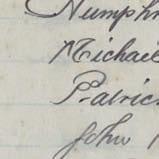 Humphr
Michael
Patric
John